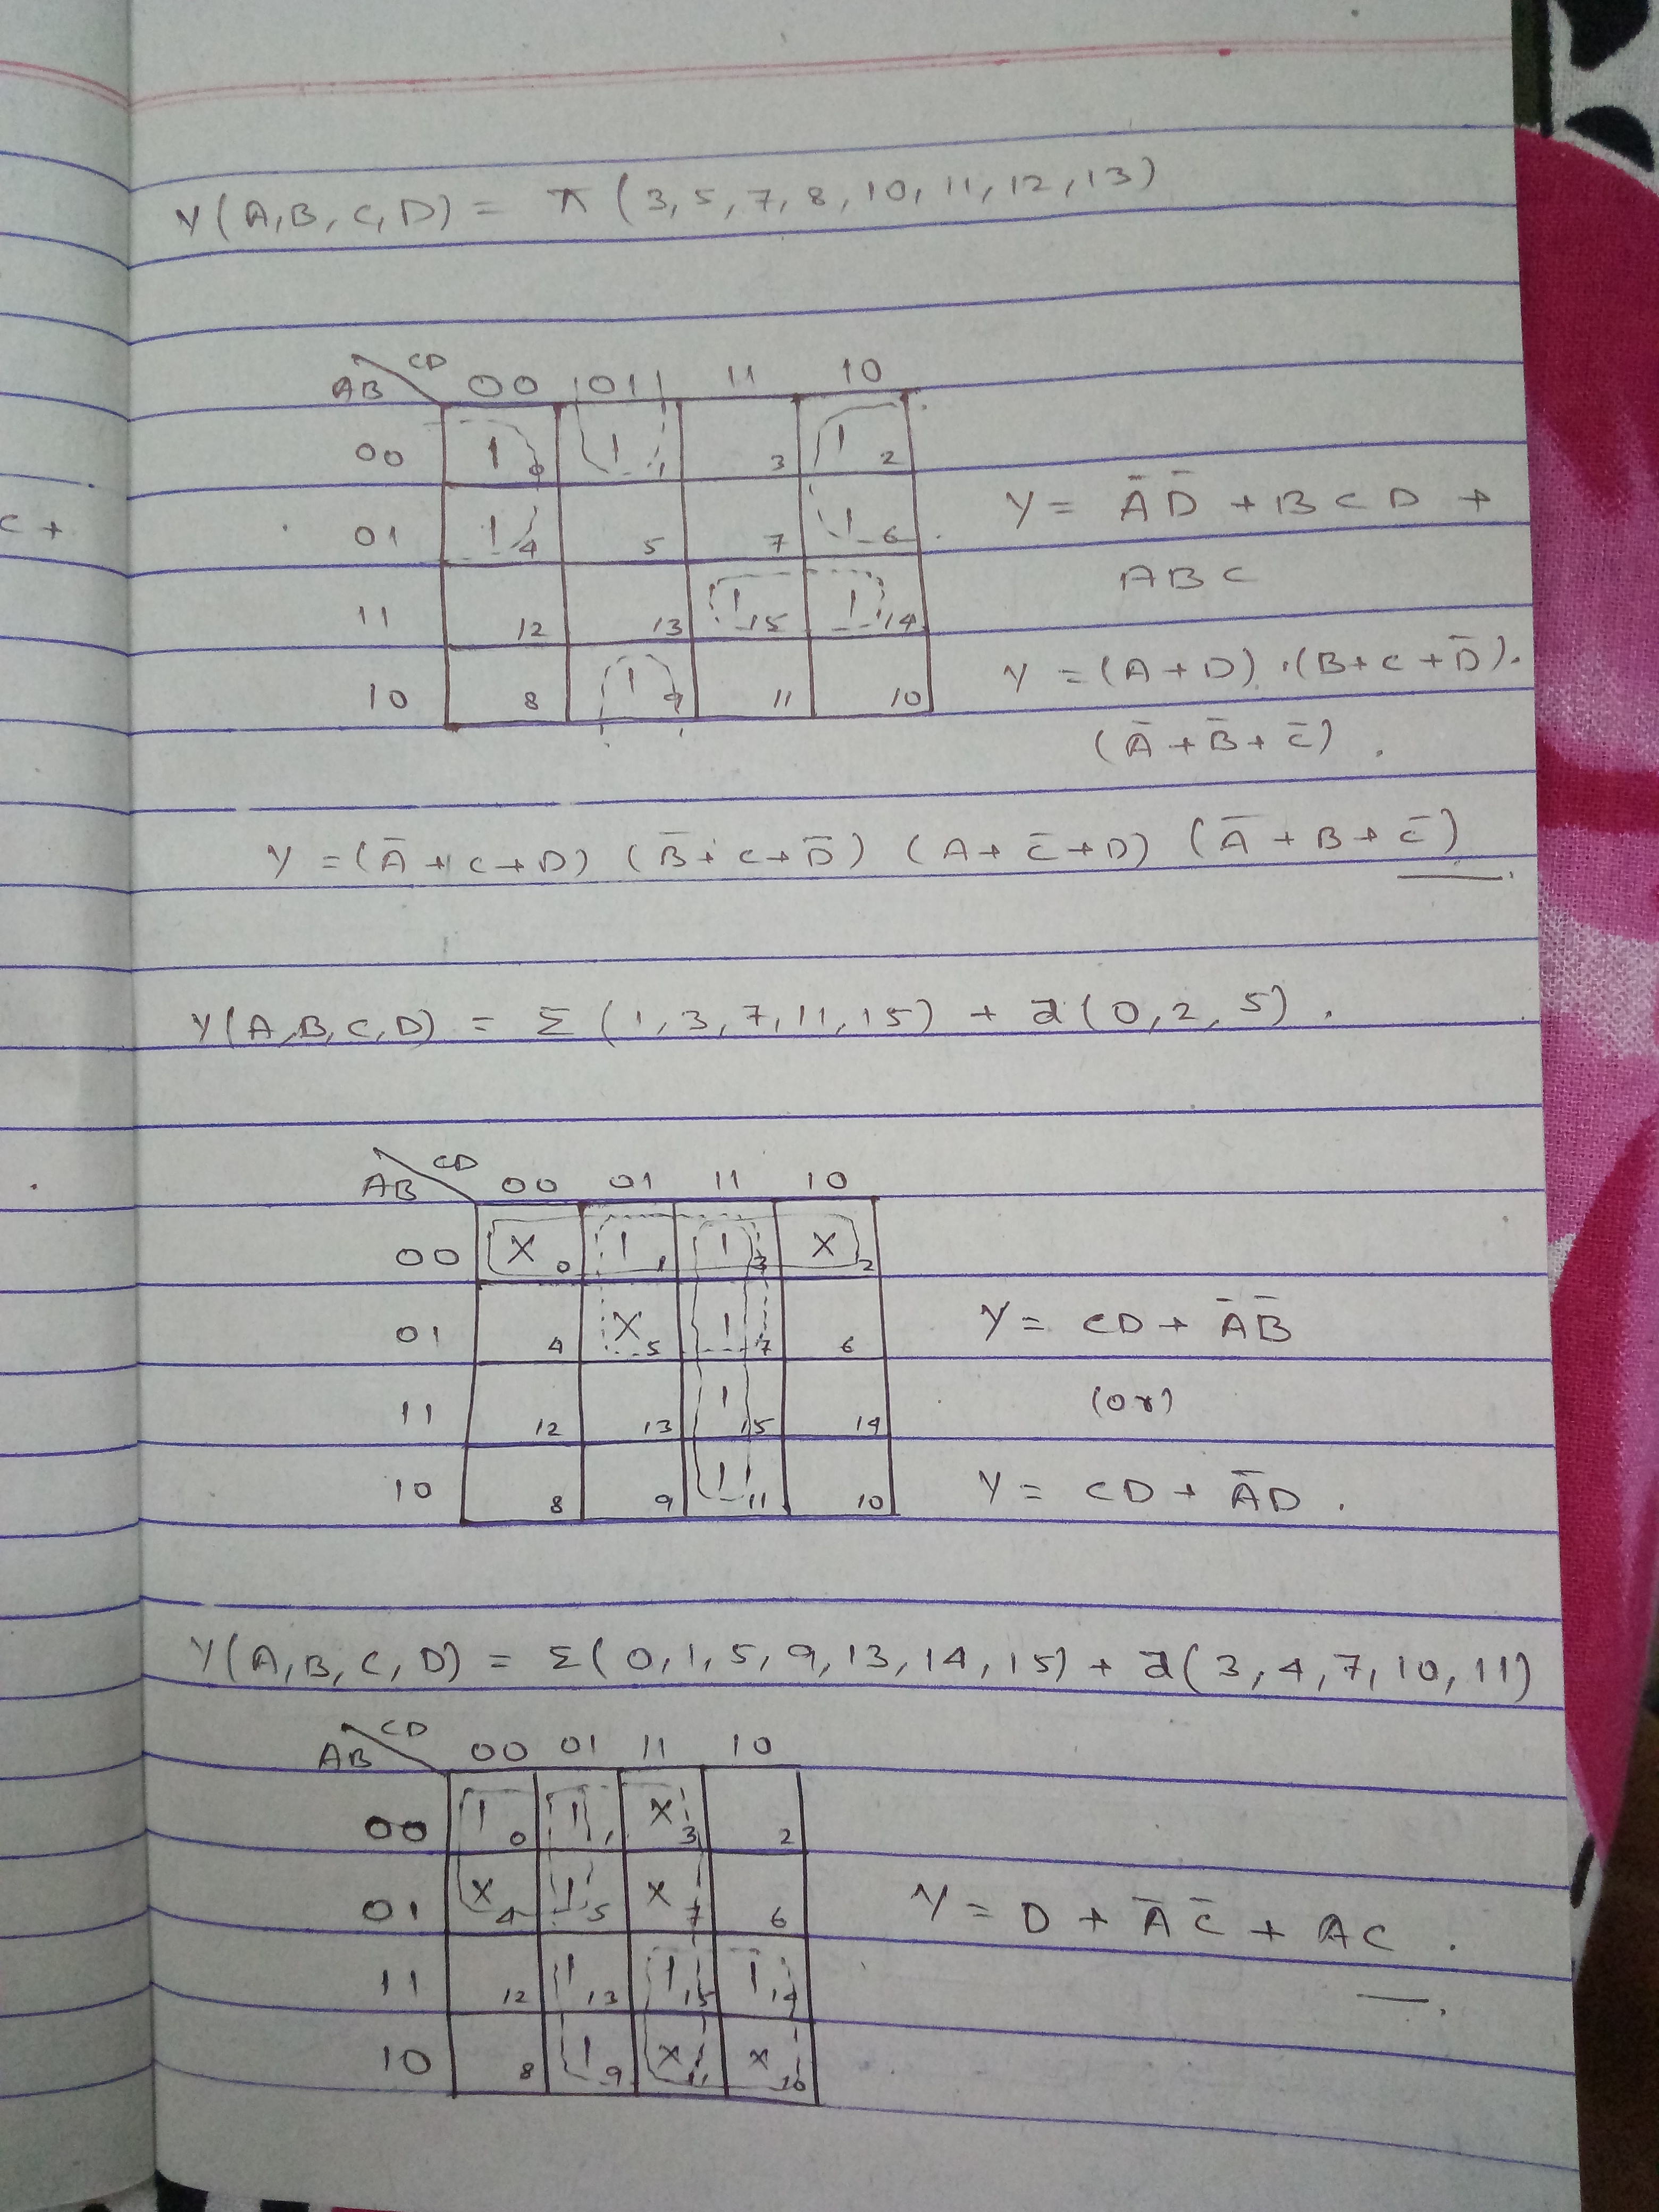 Y(A,B,C,D) = π (3,5,7,8,10,11,12,13)
AB CD 00 01 11 10
00 1 0 1 1 3 1 2
c +
01 1 4 5 7 1 6
Y = ĀD̄ + BCD +
ABC
11 12 13 1 15 1 14
10 8 1 9 11 10
Y = (A+D).(B+C+D̄).
(Ā+B̄+C̄).
Y = (Ā+C+D) (B̄+C+D̄) (A+C̄+D) (Ā+B+C̄)
Y(A,B,C,D) = Σ (1,3,7,11,15) + d(0,2,5).
AB CD 00 01 11 10
00 X 0 1 1 1 3 X 2
01 4 X 5 1 7 6
Y = CD + ĀB̄
11 12 13 1 15 14
(or)
10 8 9 1 11 10
Y = CD + ĀD.
Y(A,B,C,D) = Σ(0,1,5,9,13,14,15) + d(3,4,7,10,11)
AB CD 00 01 11 10
00 1 0 1 1 X 3 2
01 X 4 1 5 X 7 6
Y = D + ĀC̄ + AC.
11 12 1 13 1 15 1 14
10 8 1 9 X 11 X 10